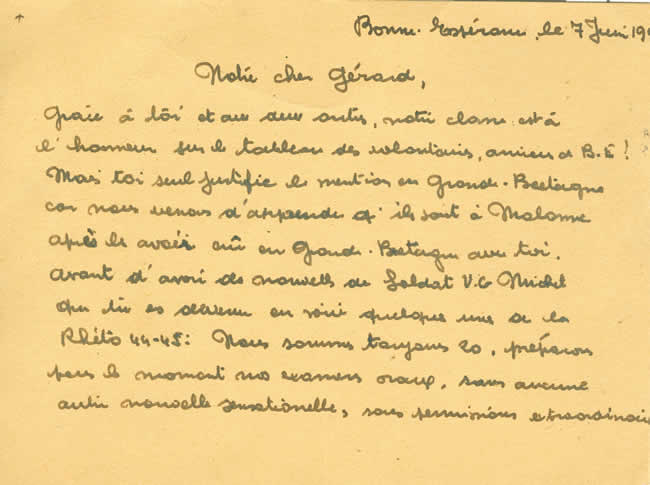 Bonne-Espérance, le 7 Juin 19
Notre cher Gérard,
Grâce à toi et aux deux autres, notre classe est à
l'honneur sur le tableau des volontaires, anciens de B.E!
Mais toi seul justifie la mention en Grande-Bretagne
car nous venons d'apprendre qu'ils sont à Malonne
après les avoir crû en Grande-Bretagne avec toi.
Avant d'avoir des nouvelles du Soldat V.G Michel
que tu es devenu en voici quelques unes de la
Rhéto 44-45: Nous sommes toujours 20, préparons
pour le moment nos examens oraux, sans aucune
autre nouvelle sensationelle, sans permissions extraordinai